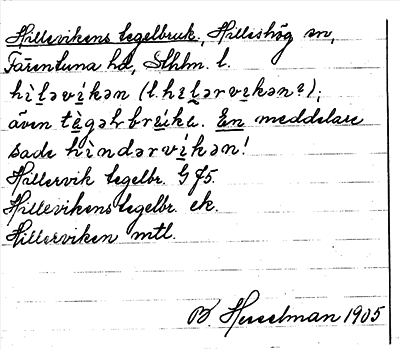 Hillevikens tegelbruk, Hilleshög sn,
Färentuna hd, Sthlm. l.
hìləvikən (l. hilərvikən?);
även tègəlbruka. En meddelare
sade hìndərvikən!
Hillervik tegelbr. GJ5.
Hillevikens tegelbr. ek.
Hillerviken mtl.
B. Hesselman 1905